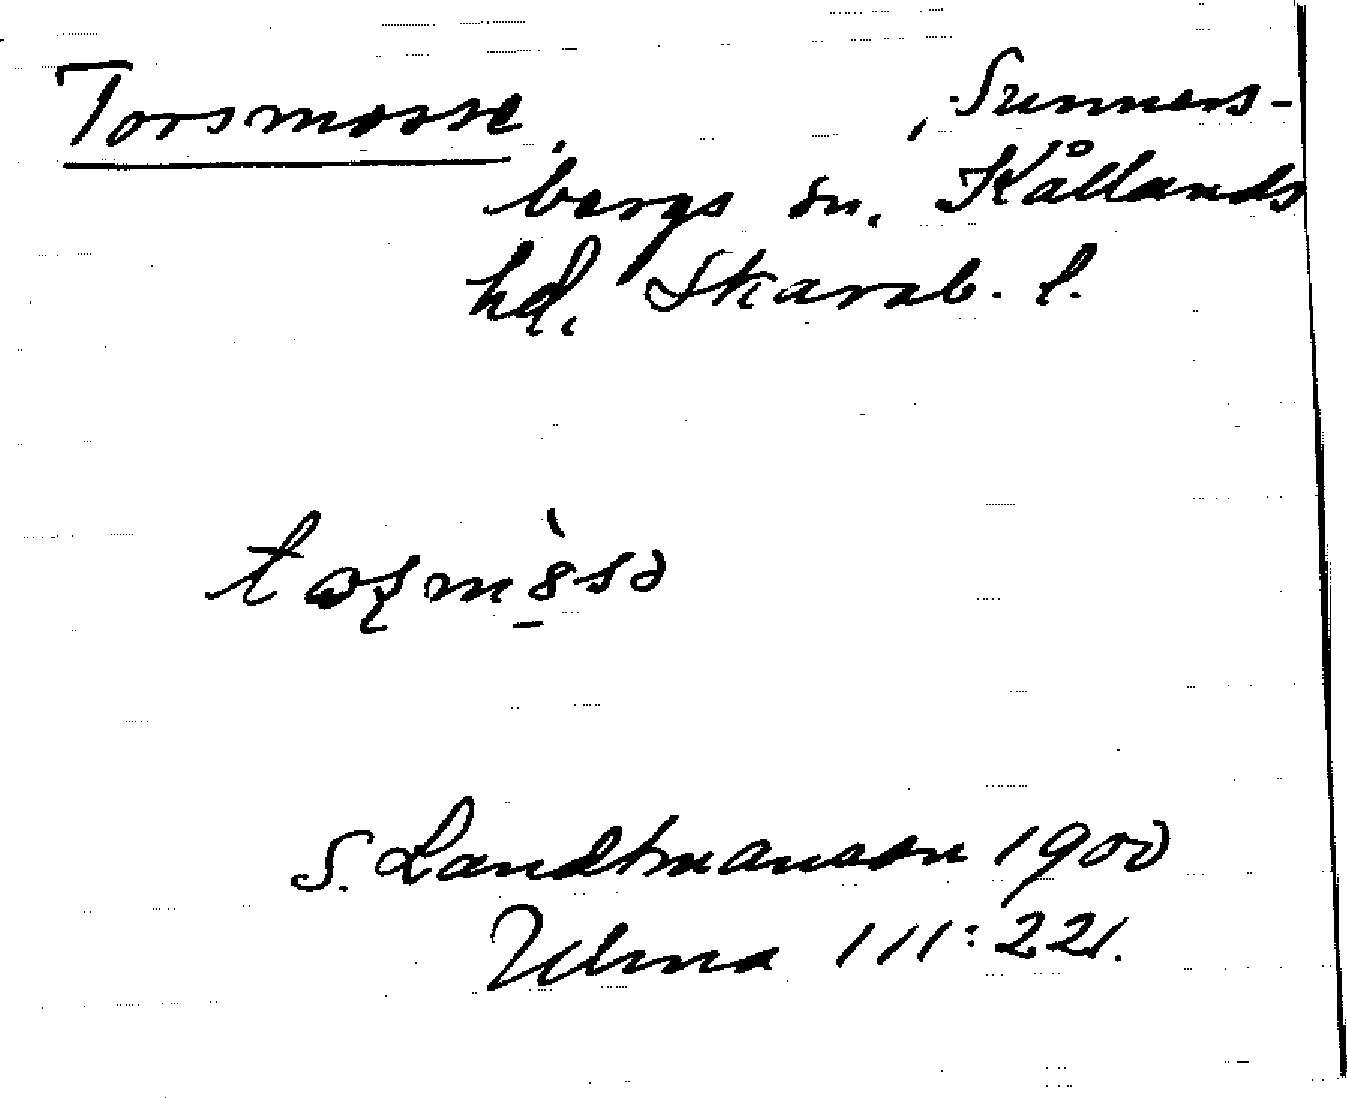 Torsmosse, , Sunners-
bergs sn. Kållands
hd. Skarab. l.
S. Landtmanson 1900
Ulma 111:22.